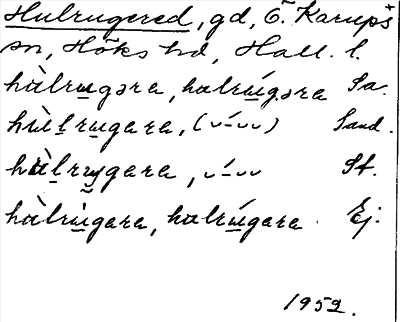 Hulrugered, gd, Ö. Karups
sn, Höks hd, Hall. l.
hùlru̲gəra, hulrú̲gəra Sa.
hùl̲ru̲gara, (◡–́◡◡) Sand.
hùl̲ru̲gara, ◡–́◡◡ St.
hùlrù̲gara, hulrú̲gara. Ej.
1952.